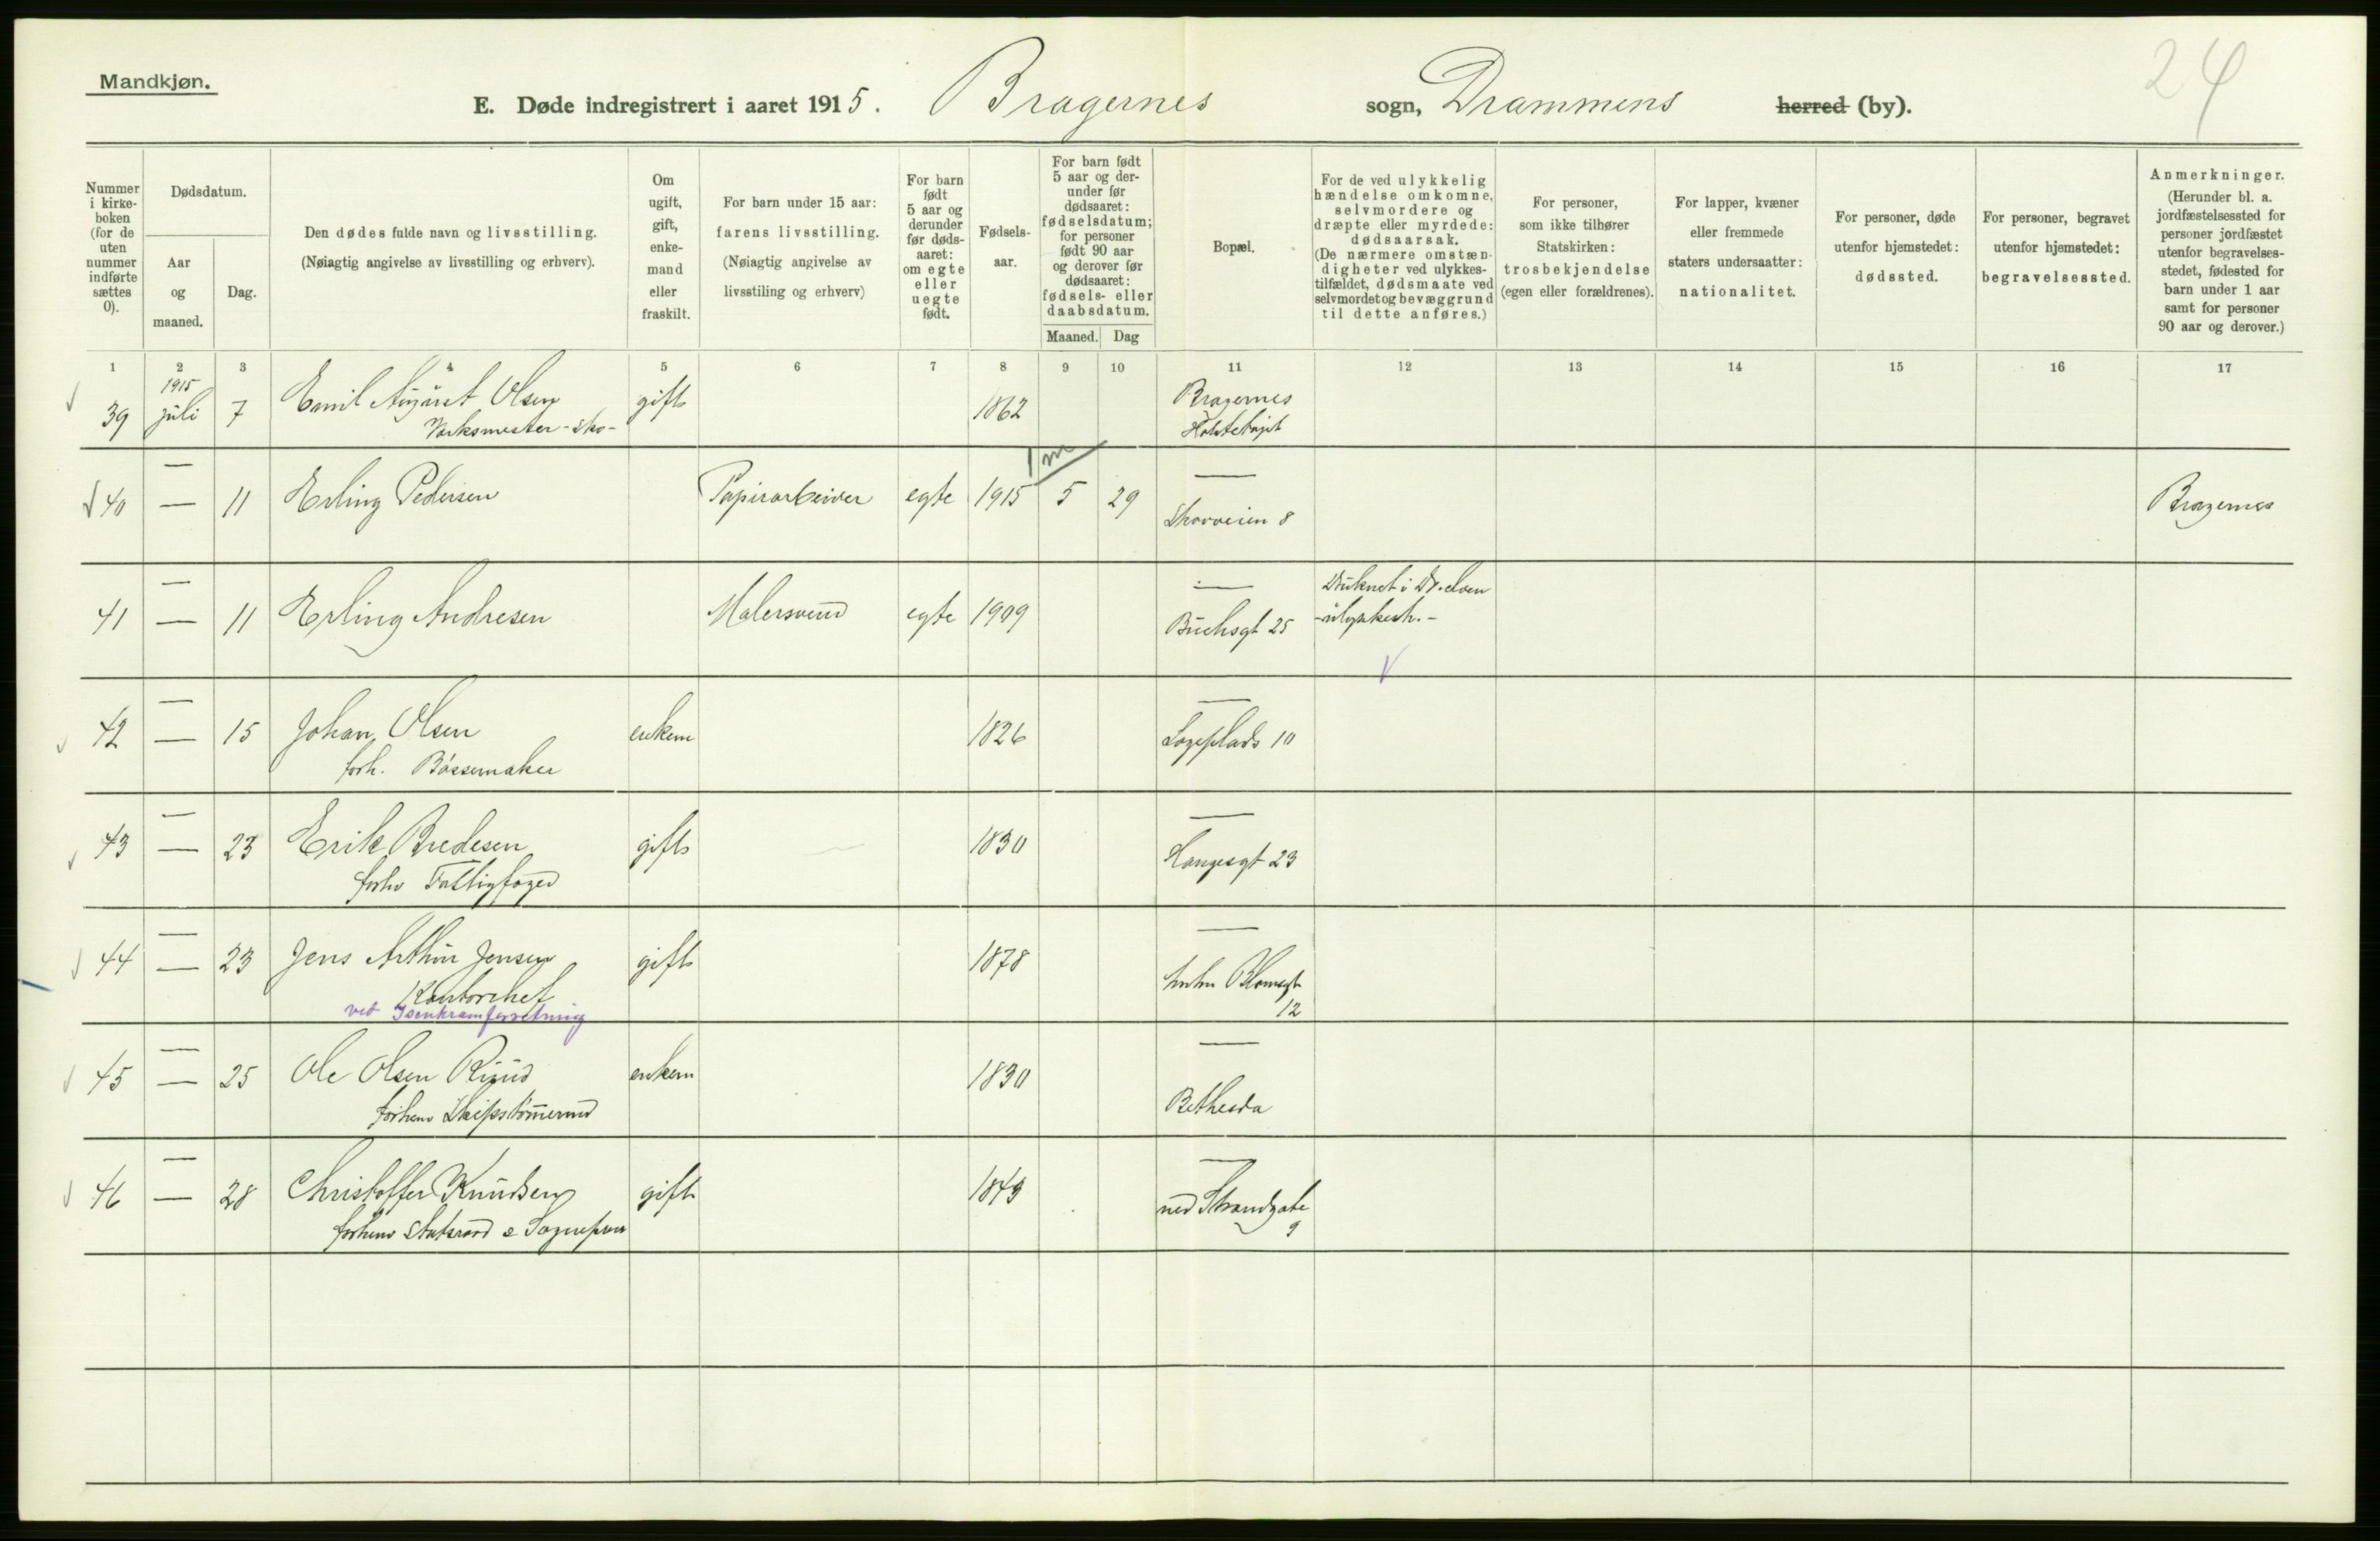 Mandkjøn.
24
E. Døde indregistrert i aaret 1915. Bragernes sogn, Drammens herred (by).
Nummer i kirke-boken (for de uten nummer indførte sættes 0).
Dødsdatum.
Aar og maaned.
Dag.
Den dødes fulde navn og livsstilling.
(Nøiagtig angivelse av livsstilling og erhverv).
Om ugift, gift, enke-mand eller fraskilt.
For barn under 15 aar: farens livsstilling.
(Nøiagtig angivelse av livsstiling og erhverv)
For barn født 5 aar og derunder før døds-aaret: om egte eller uegte født.
Fødsels-aar.
For barn født 5 aar og der-under før dødsaaret: fødselsdatum; for personer født 90 aar og derover før dødsaaret: fødsels- eller daabsdatum.
Maaned. Dag
Bopæl.
For de ved ulykkelig hændelse omkomne, selvmordere og dræpte eller myrdede: dødsaarsak.
(De nærmere omstæn-digheter ved ulykkes-tilfældet, dødsmaate ved selvmordet og bevæggrund til dette anføres.)
For personer, som ikke tilhører Statskirken: trosbekjendelse (egen eller forældrenes).
For lapper, kvæner eller fremmede staters undersaatter: nationalitet.
For personer, døde utenfor hjemstedet: dødssted.
For personer, begravet utenfor hjemstedet: begravelsessted.
Anmerkninger.
(Herunder bl. a. jordfæstelsessted for personer jordfæstet utenfor begravelses-stedet, fødested for barn under 1 aar samt for personer 90 aar og derover.)
1 2 3 4 5 6 7 8 9 10 11 12 13 14 15 16 17
1915
39 juli 7 Emil August Olsen gift 1862 Bragernes
Verksmester - sko-
1 m
40 — 11 Erling Pedersen Papirarbeider egte 1915 5 29 — Skovveien 8 Bragernes
41 — 11 Erling Andresen Malersvend egte 1909 — Buchsgt 25 Druknet i Dr. elven
- ulykkesh. -
42 — 15 Johan Olsen enkem 1826 — Logeplads 10
forh. Børsemaker
43 — 23 Erik Bredesen gift 1830 — Haugesgt 23
forhv Fattigfoged
44 — 23 Jens Arthur Jensen gift 1878 — Blomsgt
Kontorchef 12
ved Isenkramforretning
45 — 25 Ole Olsen Ruud enkem 1830 — Bethesda
forhenv Skipstømmermd
46 — 28 Christoffer Knudsen gift 1843 — ned Strandgate
forhenv Statsraad & Sogneprest 9